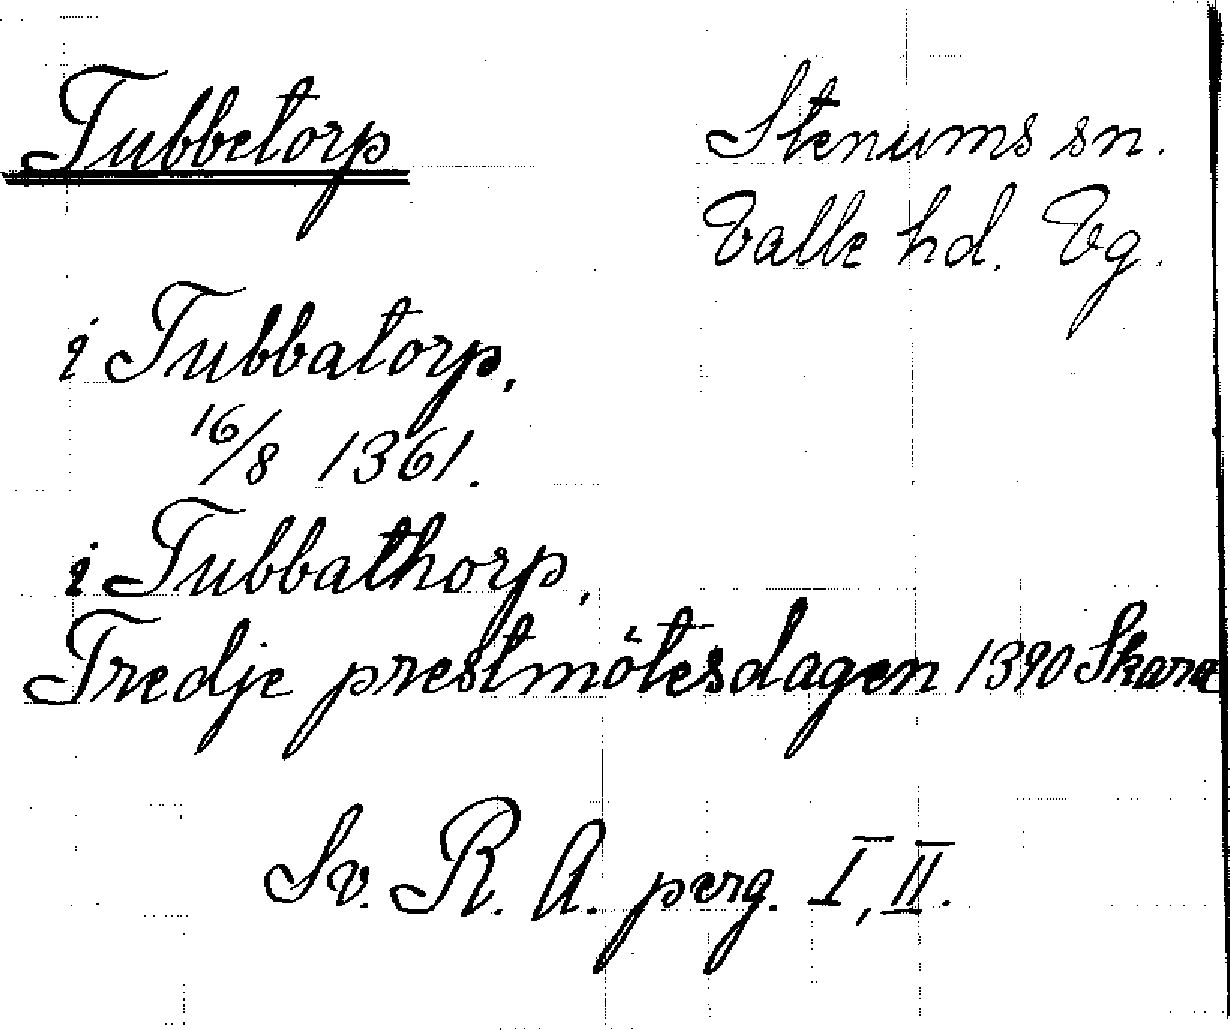 Tubbetorp
Stenums sn.
Valle hd. Vg.
i Tubbatorp,
16/8 1361.
i Tubbathorp,
Tredje prestmötesdagen 1390 Skara
Sv. R. A. perg. I, II.